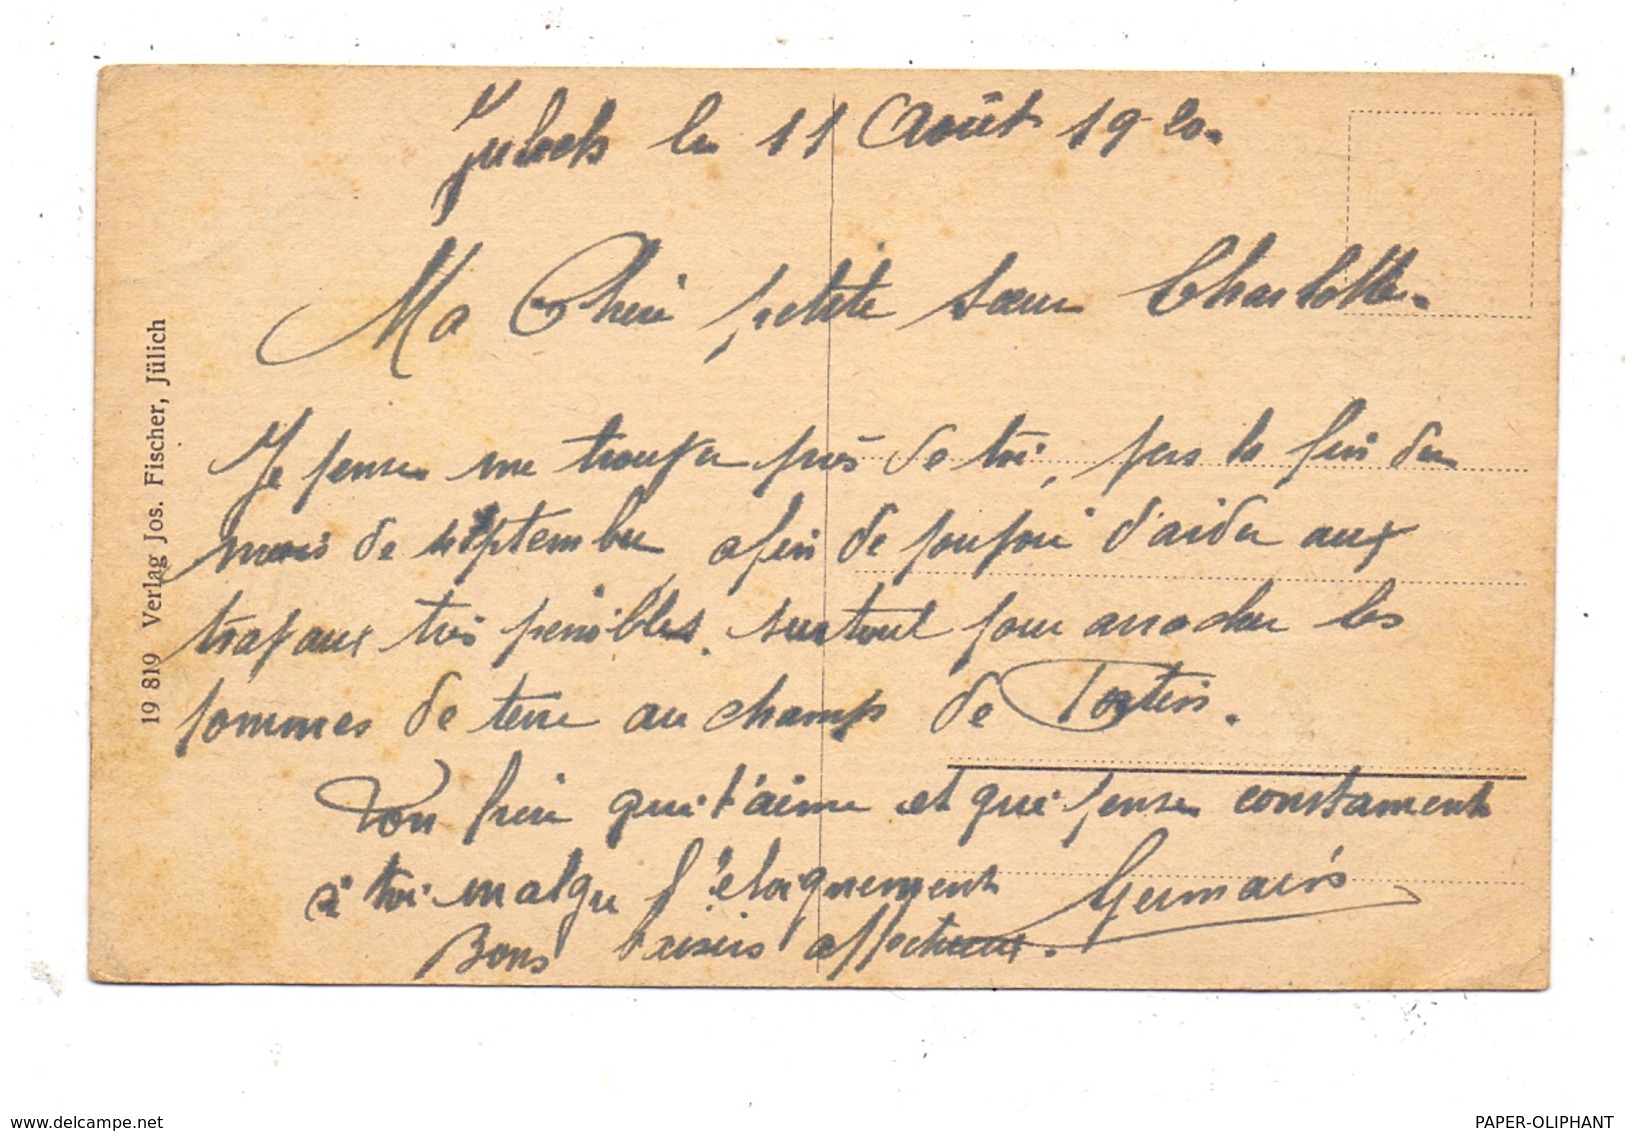 Juliech le 11 Août 1920.
Ma Chère petite sœur Charlotte.
Je pense me trouver près de toi, vers la fin du
mois de septembre afin de pouvoir d'aider aux
travaux très penibles. surtout pour arracher les
pommes de terre au champs de
Ton frère qui t'aime et qui pense constament
à toi malgre l'eloignement Germain
Bons baisers affectueux.
19 819 Verlag Jos. Fischer, Jülich
www.delcampe.net
PAPER-OLIPHANT